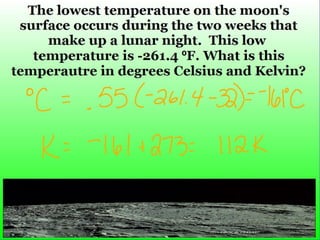 The lowest temperature on the moon's
surface occurs during the two weeks that
make up a lunar night. This low
temperature is -261.4 °F. What is this
temperautre in degrees Celsius and Kelvin?
°C = .55 (-261.4 -32)= -161°C
K= -161 +273= 112K